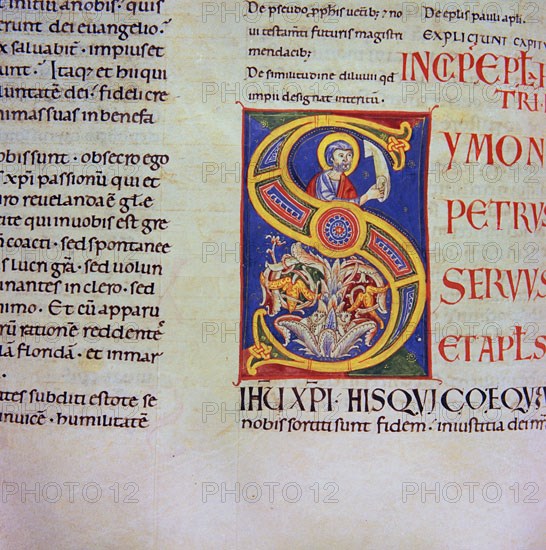 initii anobis · quis
erunt dei euangelio ·
x saluabit̃ · impius et
unt · Itaq; et hi qui
luntatẽ dei · fideli cre
nimas suas in benefa
obis sunt · obsecro ego
xp̃i passionũ qui et
ro reuelanda ẽ gl̃e
ite qui in uobis est gre
ñ coacti · sed spontanee
s lucri gr̃a · sed uolun
nantes in clero · sed
nimo · Et cũ apparu
rũ ratione reddentẽ
lã floridã · et in mar
tes subditi estote se
inuicẽ · humilitatẽ
De pseudo pphis uentib; ? no
ui testam̃ti futuris magistri
mendacib;
De similitudine diluuii qd
impii designat interitũ ·
De eplis pauli apli ·
EXPLICIUNT CAPITU
INCIP EPLA
TRI
SYMON
PETRUS
SERVVS
ET APLS
IH̃U XP̃I · HIS QVI COEQV
nobis sortiti sunt fidem · in iustitia dei nr̃i
PHOTO 12